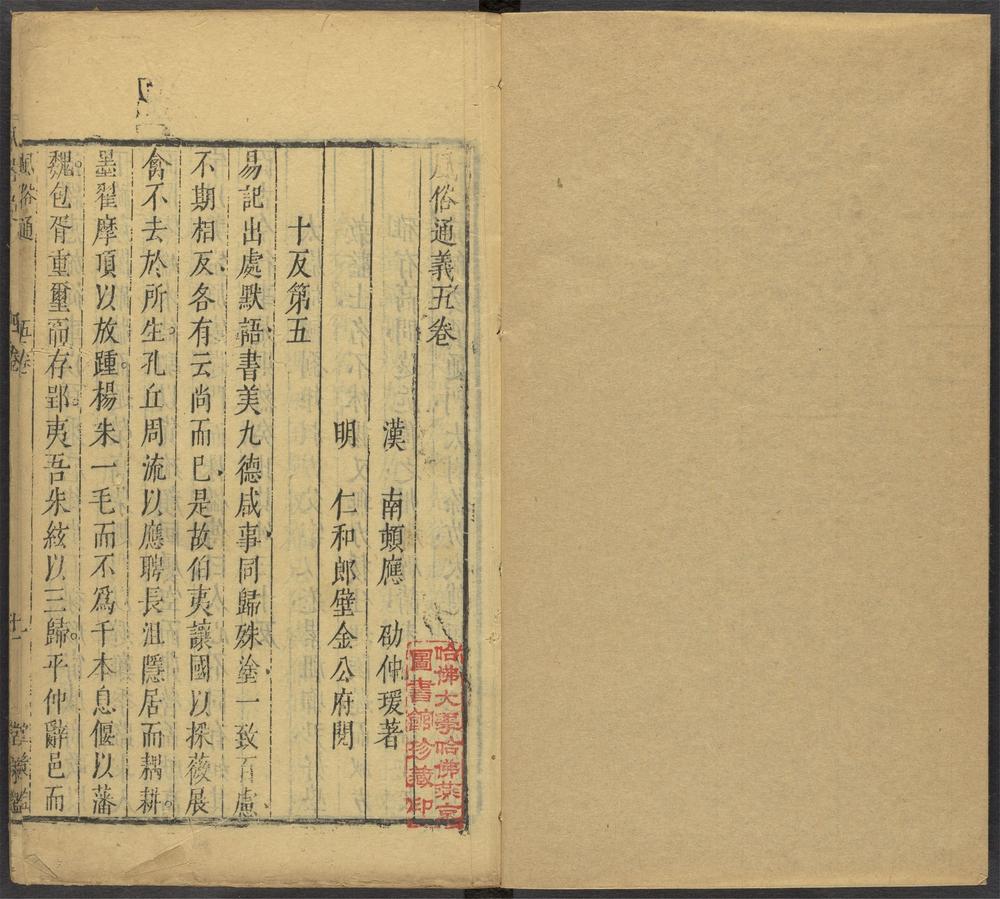 風俗通義五卷
漢　南頓應　劭仲瑗著
明　仁和郎壁金公府閱
十反第五
易記出處默語書美九德咸事同歸殊塗一致百慮
不期相反各有云尚而巳是故伯夷讓國以採薇展
禽不去於所生孔丘周流以應聘長沮隱居而耦耕
墨翟摩頂以放踵楊朱一毛而不爲干木息偃以藩
魏包胥重璽而存郢夷吾朱絃以三歸平仲辭邑而
風俗通　五卷　堂策檻
哈佛大學哈佛燕京
圖書館珍藏印